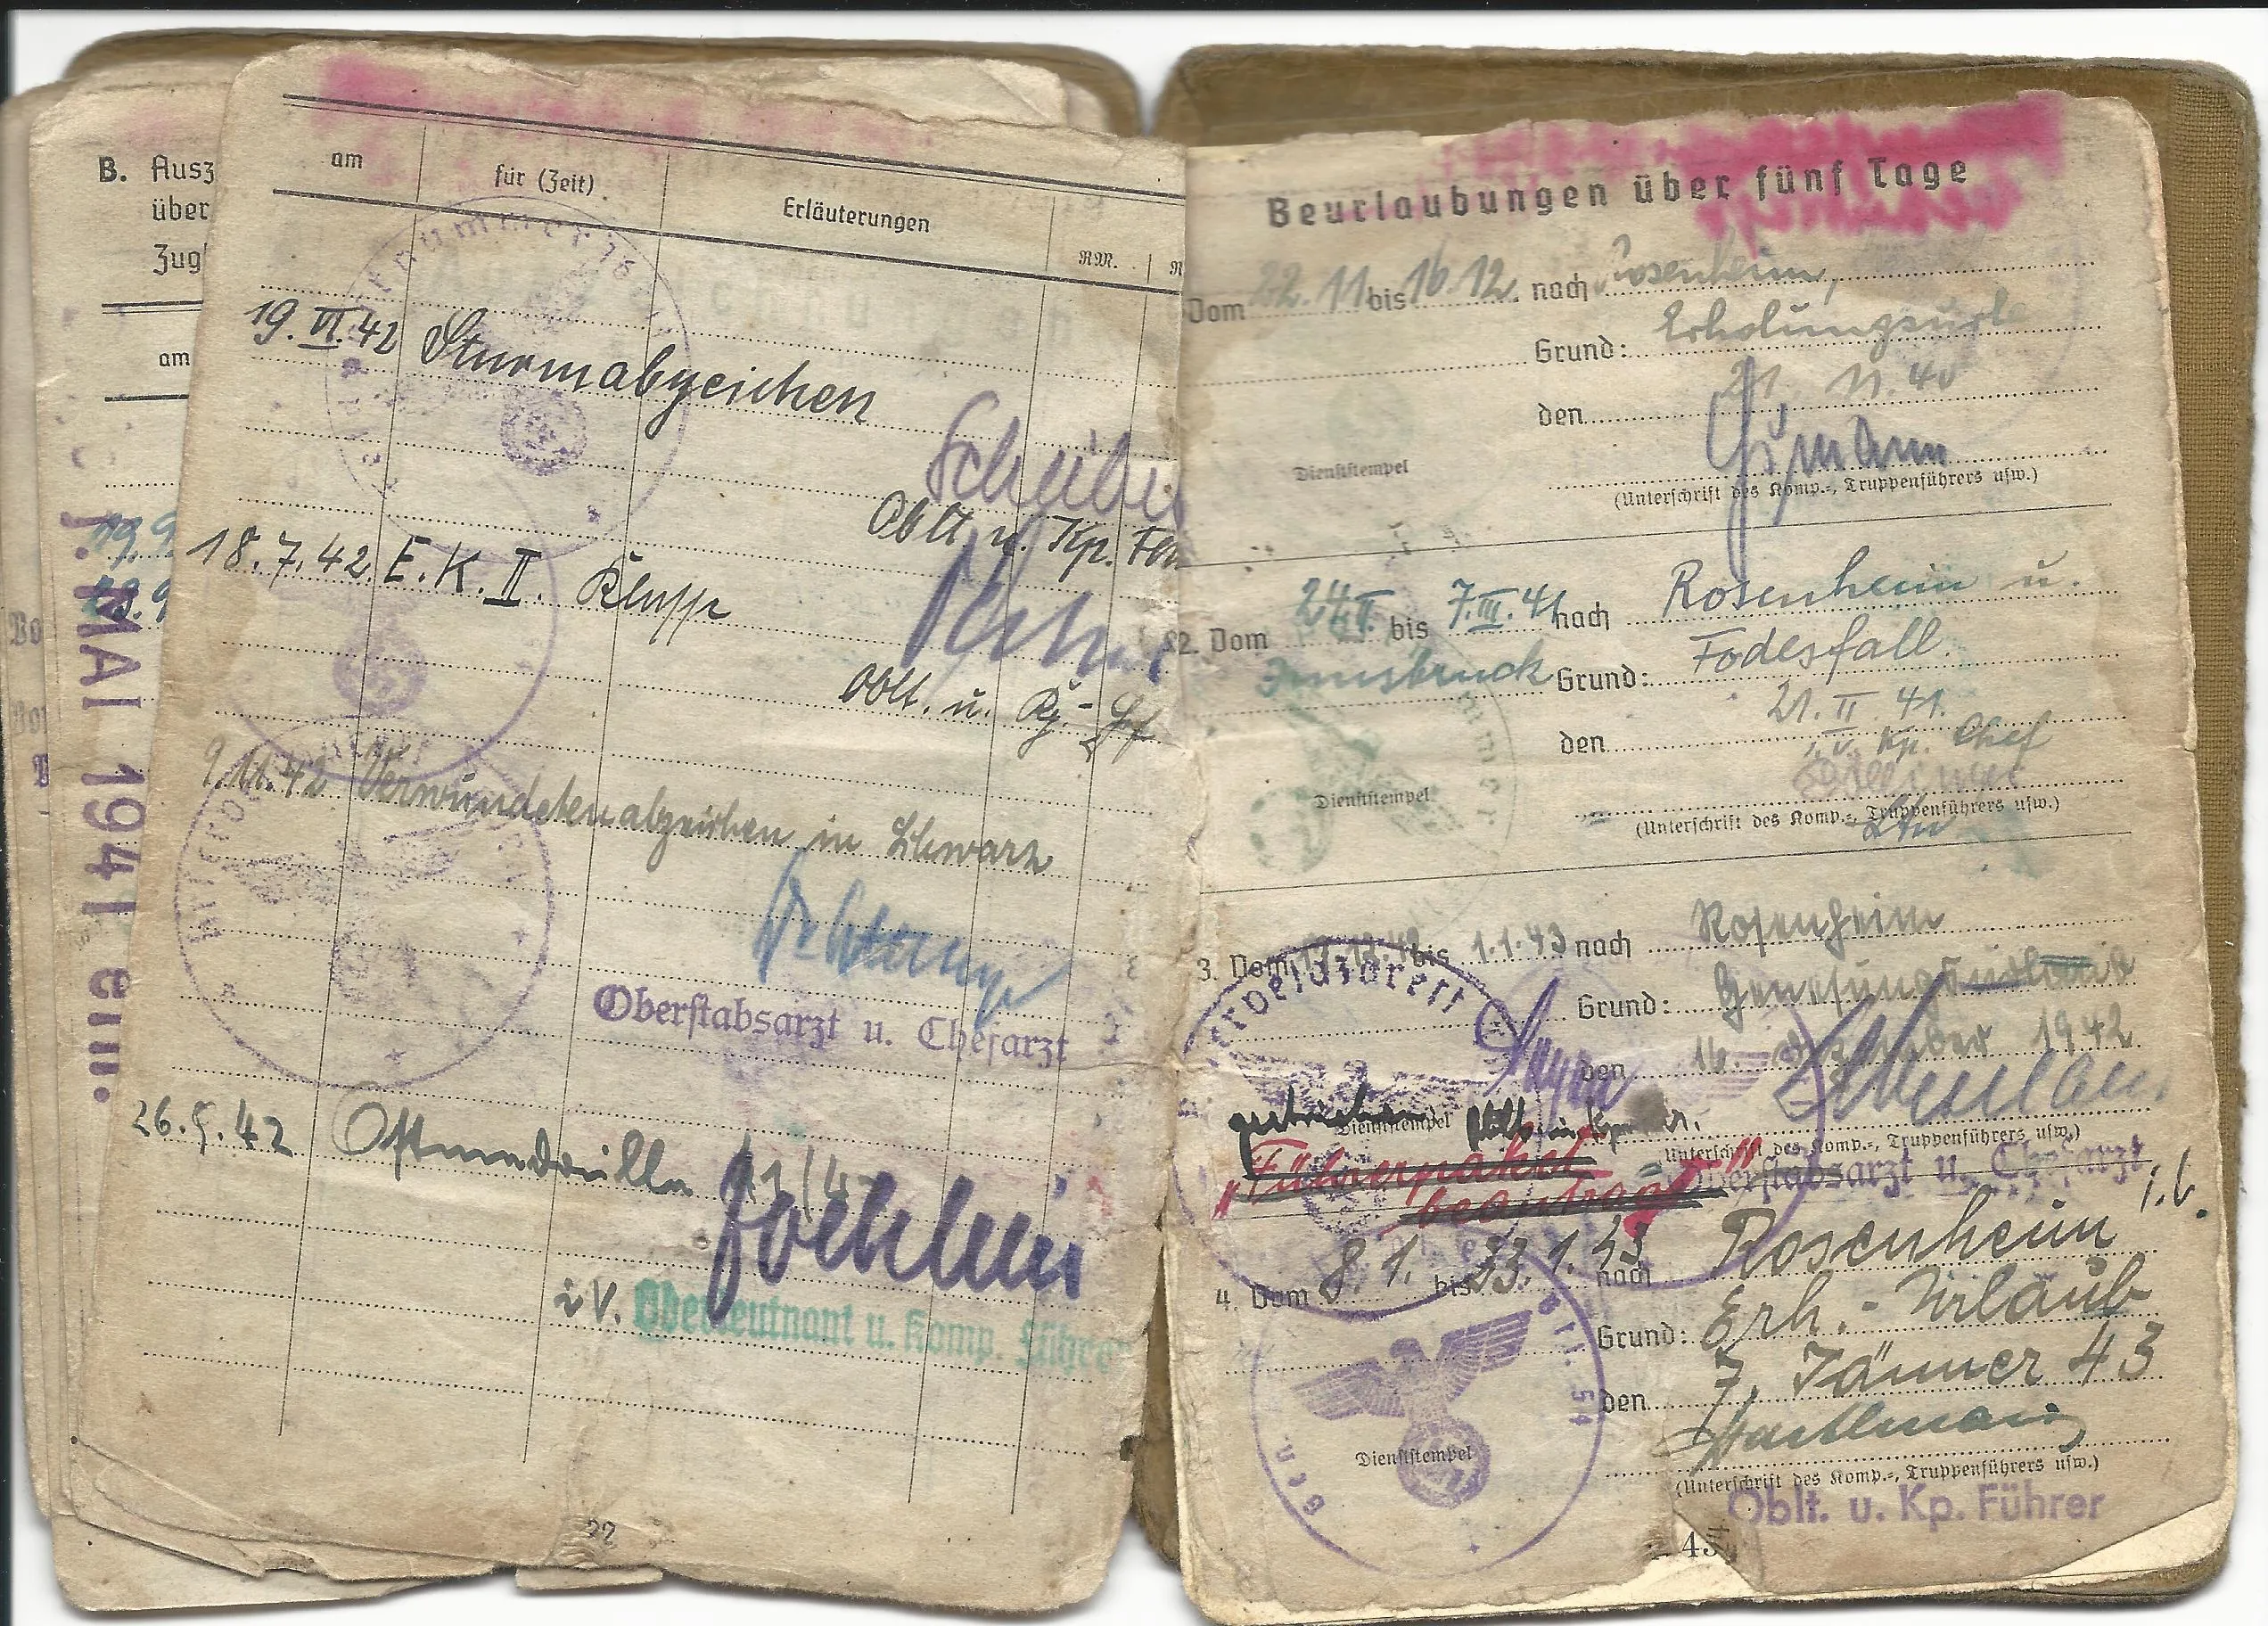 B. Ausz
über
Zug
am
19.9
7. MAI 1941
am
für (Zeit)
Erläuterungen
RM.
19.VI.42 Sturmabzeichen
Oblt u. Kp.
18.7.42. E.K.II. Klasse
Oblt. u.
9.11.42 Verwundetenabzeichen in Schwarz
Oberstabsarzt u. Chefarzt
42 Ostmedaille
i.V. Oberleutnant u. Komp. Führer
22
Beurlaubungen über fünf Tage
Vom 22.11 bis 16.12. nach Rosenheim,
Grund: Erholungsurl
den 21. 11. 40
Dienststempel
(Unterschrift des Komp.-, Truppenführers usw.)
2. Vom 24.II. bis 7.III.41 nach Rosenheim u.
Innsbruck Grund: Todesfall.
den 21. II. 41.
i.V. Kp. Chef
Dienststempel
(Unterschrift des Komp.-, Truppenführers usw.)
3. Vom 17.12.42 bis 1.1.43 nach Rosenheim
Feldlazarett
Grund: Genesungsurlaub
den 16. Dezember 1942
Dienststempel
(Unterschrift des Komp.-, Truppenführers usw.)
gestrichen
"Führerpaket
beantragt"
Oberstabsarzt u. Chefarzt
4. Vom 8.1. bis 23.1.43 nach Rosenheim
Grund: Erh.-Urlaub
den 7. Jänner 43
Dienststempel
(Unterschrift des Komp.-, Truppenführers usw.)
Oblt. u. Kp. Führer